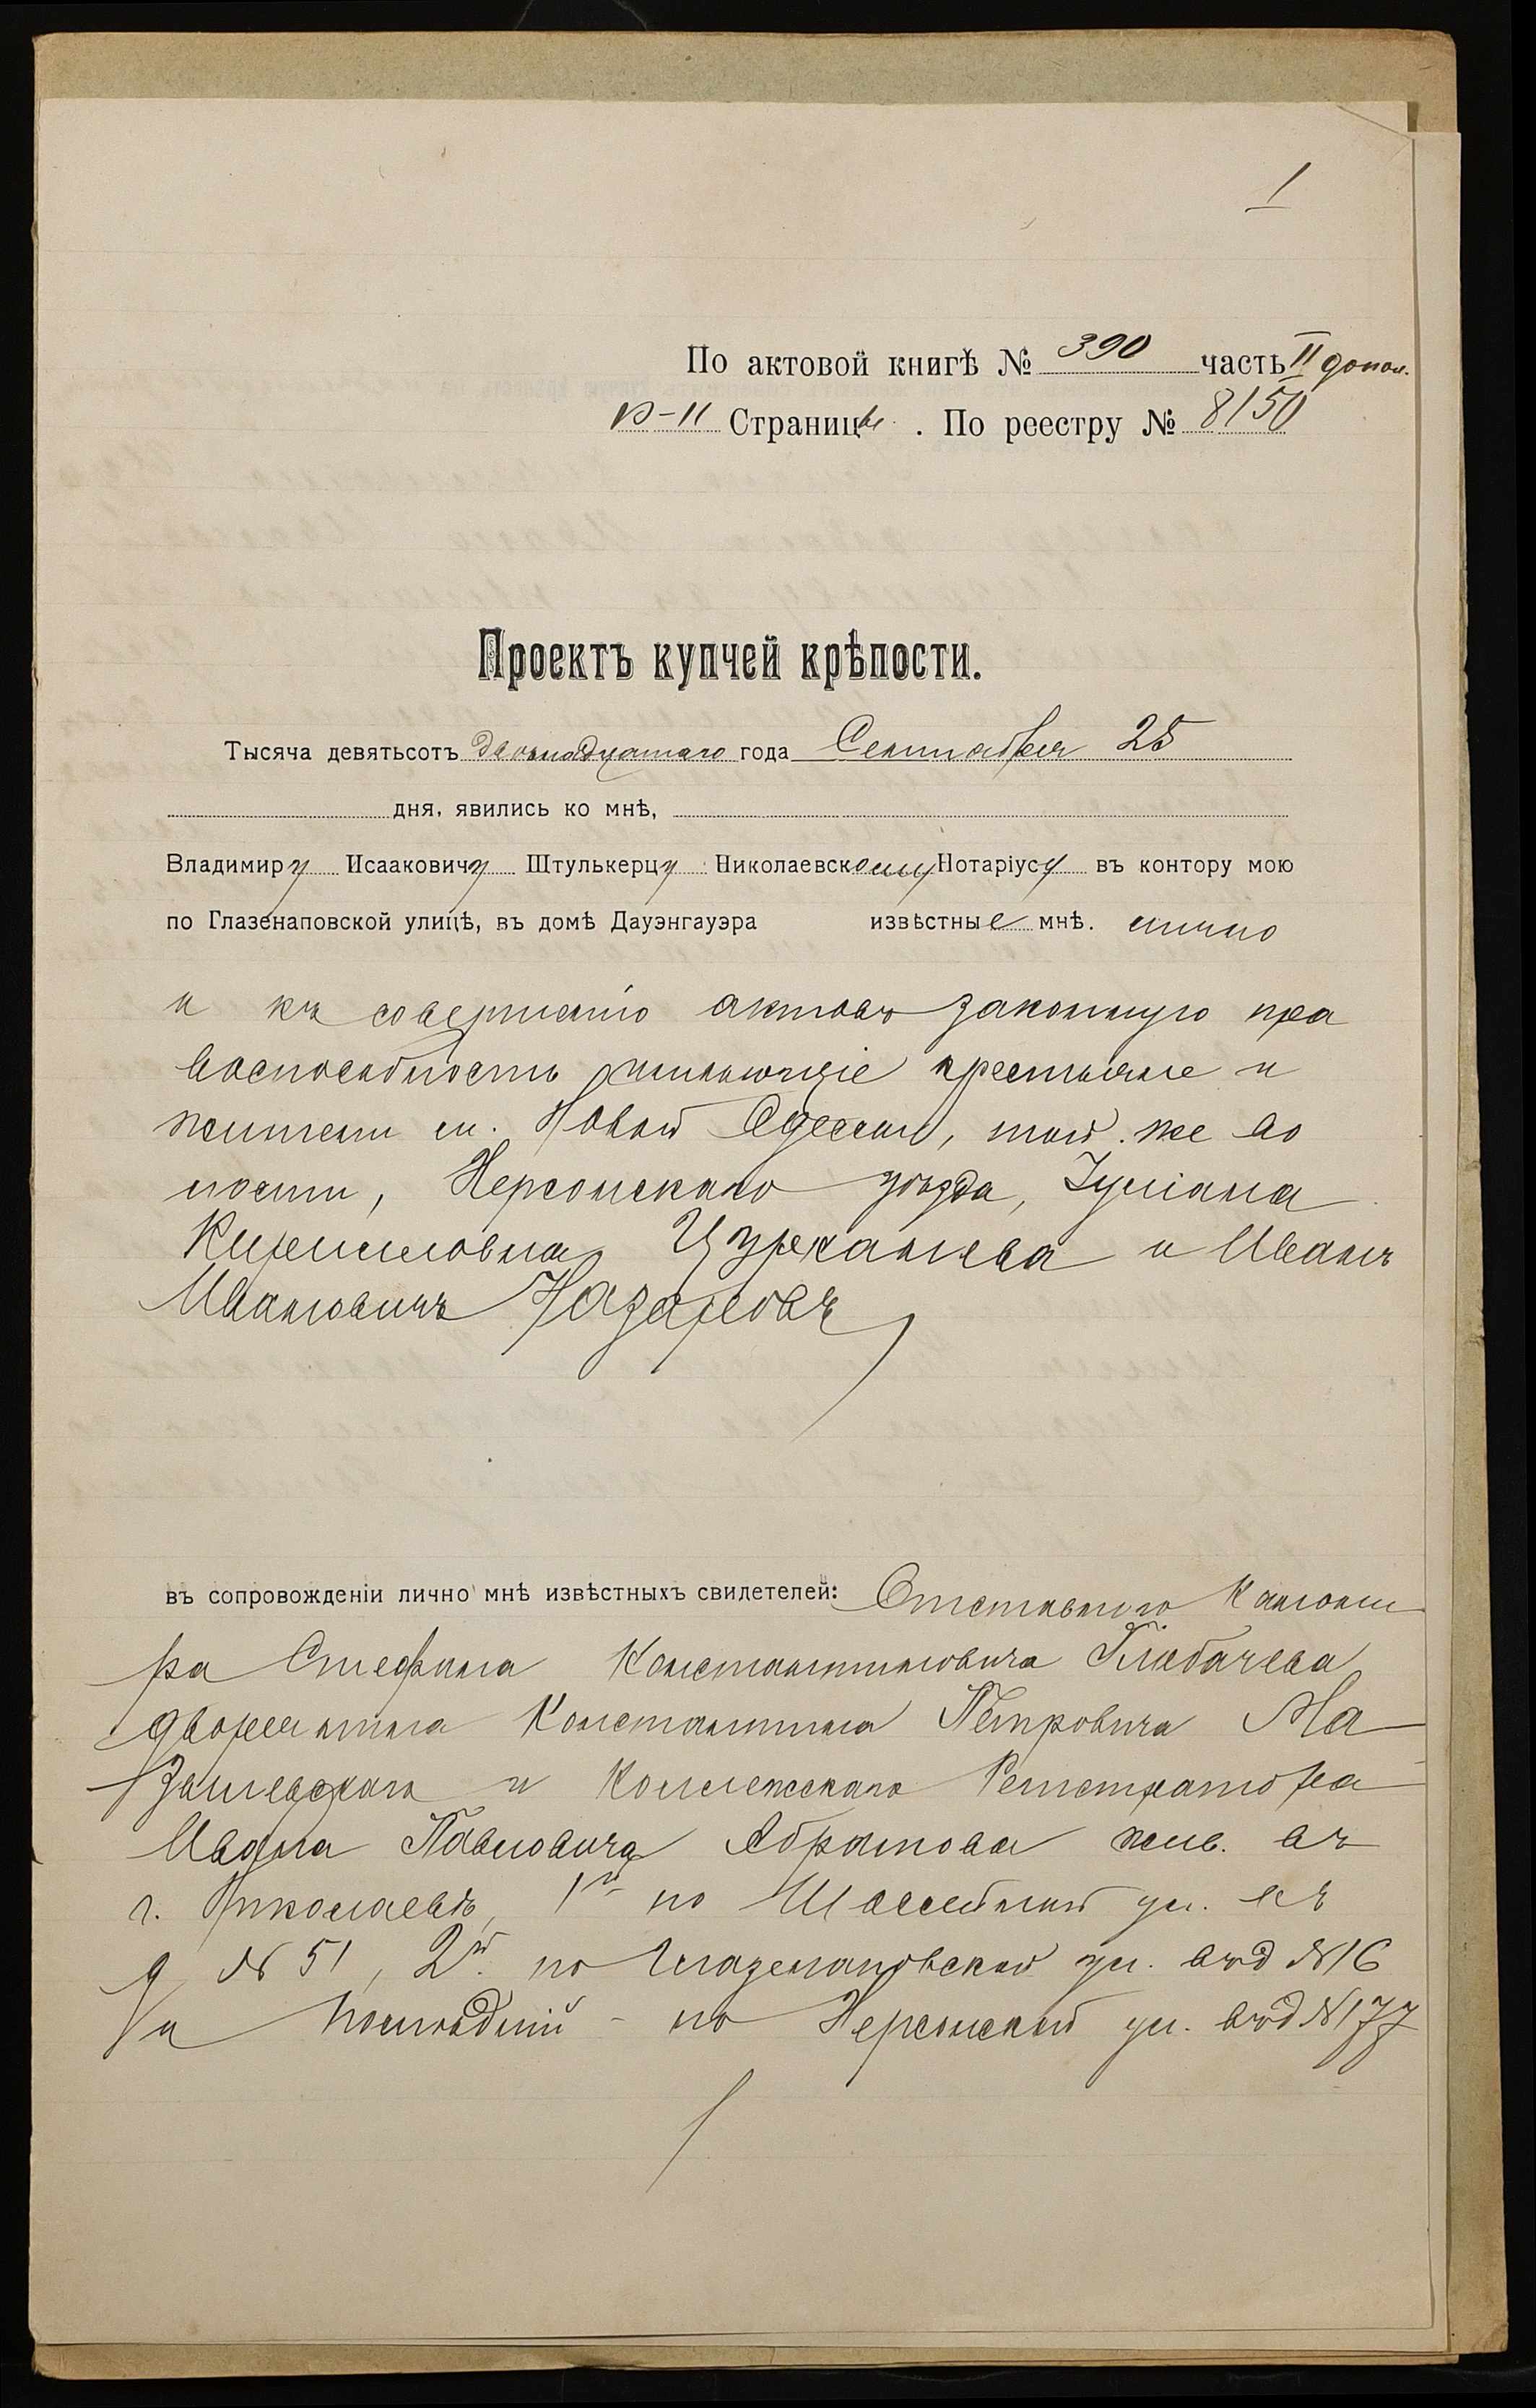 1
По актовой книгѣ № 390 часть II допол.
10-11 Страницы. По реестру № 8150
Проектъ купчей крѣпости.
Тысяча девятьсотъ двѣнадцатаго года Сентября 25
дня, явились ко мнѣ,
Владимиру Исааковичу Штулькерцу Николаевскому Нотаріусу въ контору мою
по Глазенаповской улицѣ, въ домѣ Дауэнгауэра извѣстные мнѣ. лично
и къ совершенію актовъ законную пра
воспособность имѣющіе крестьяне и
жители м. Новой Одессы, той же во
лости, Херсонскаго уѣзда, Іуліана
Кирилловна и Иванъ
Ивановичъ Назаровъ
въ сопровожденіи лично мнѣ извѣстныхъ свилетелей: Отставного Канони
ра Стефана Константиновича Глабачева
дворянина Константина Петровича Ма
и Коллежскаго Регистратора
Ивана Павловича Абрамова жив. въ
г. Николаевѣ, 1й по Шоссейной ул. въ
д № 51, 2й по Глазенаповской ул. въ д № 16
и послѣдній - по Херсонской ул. въ д № 177